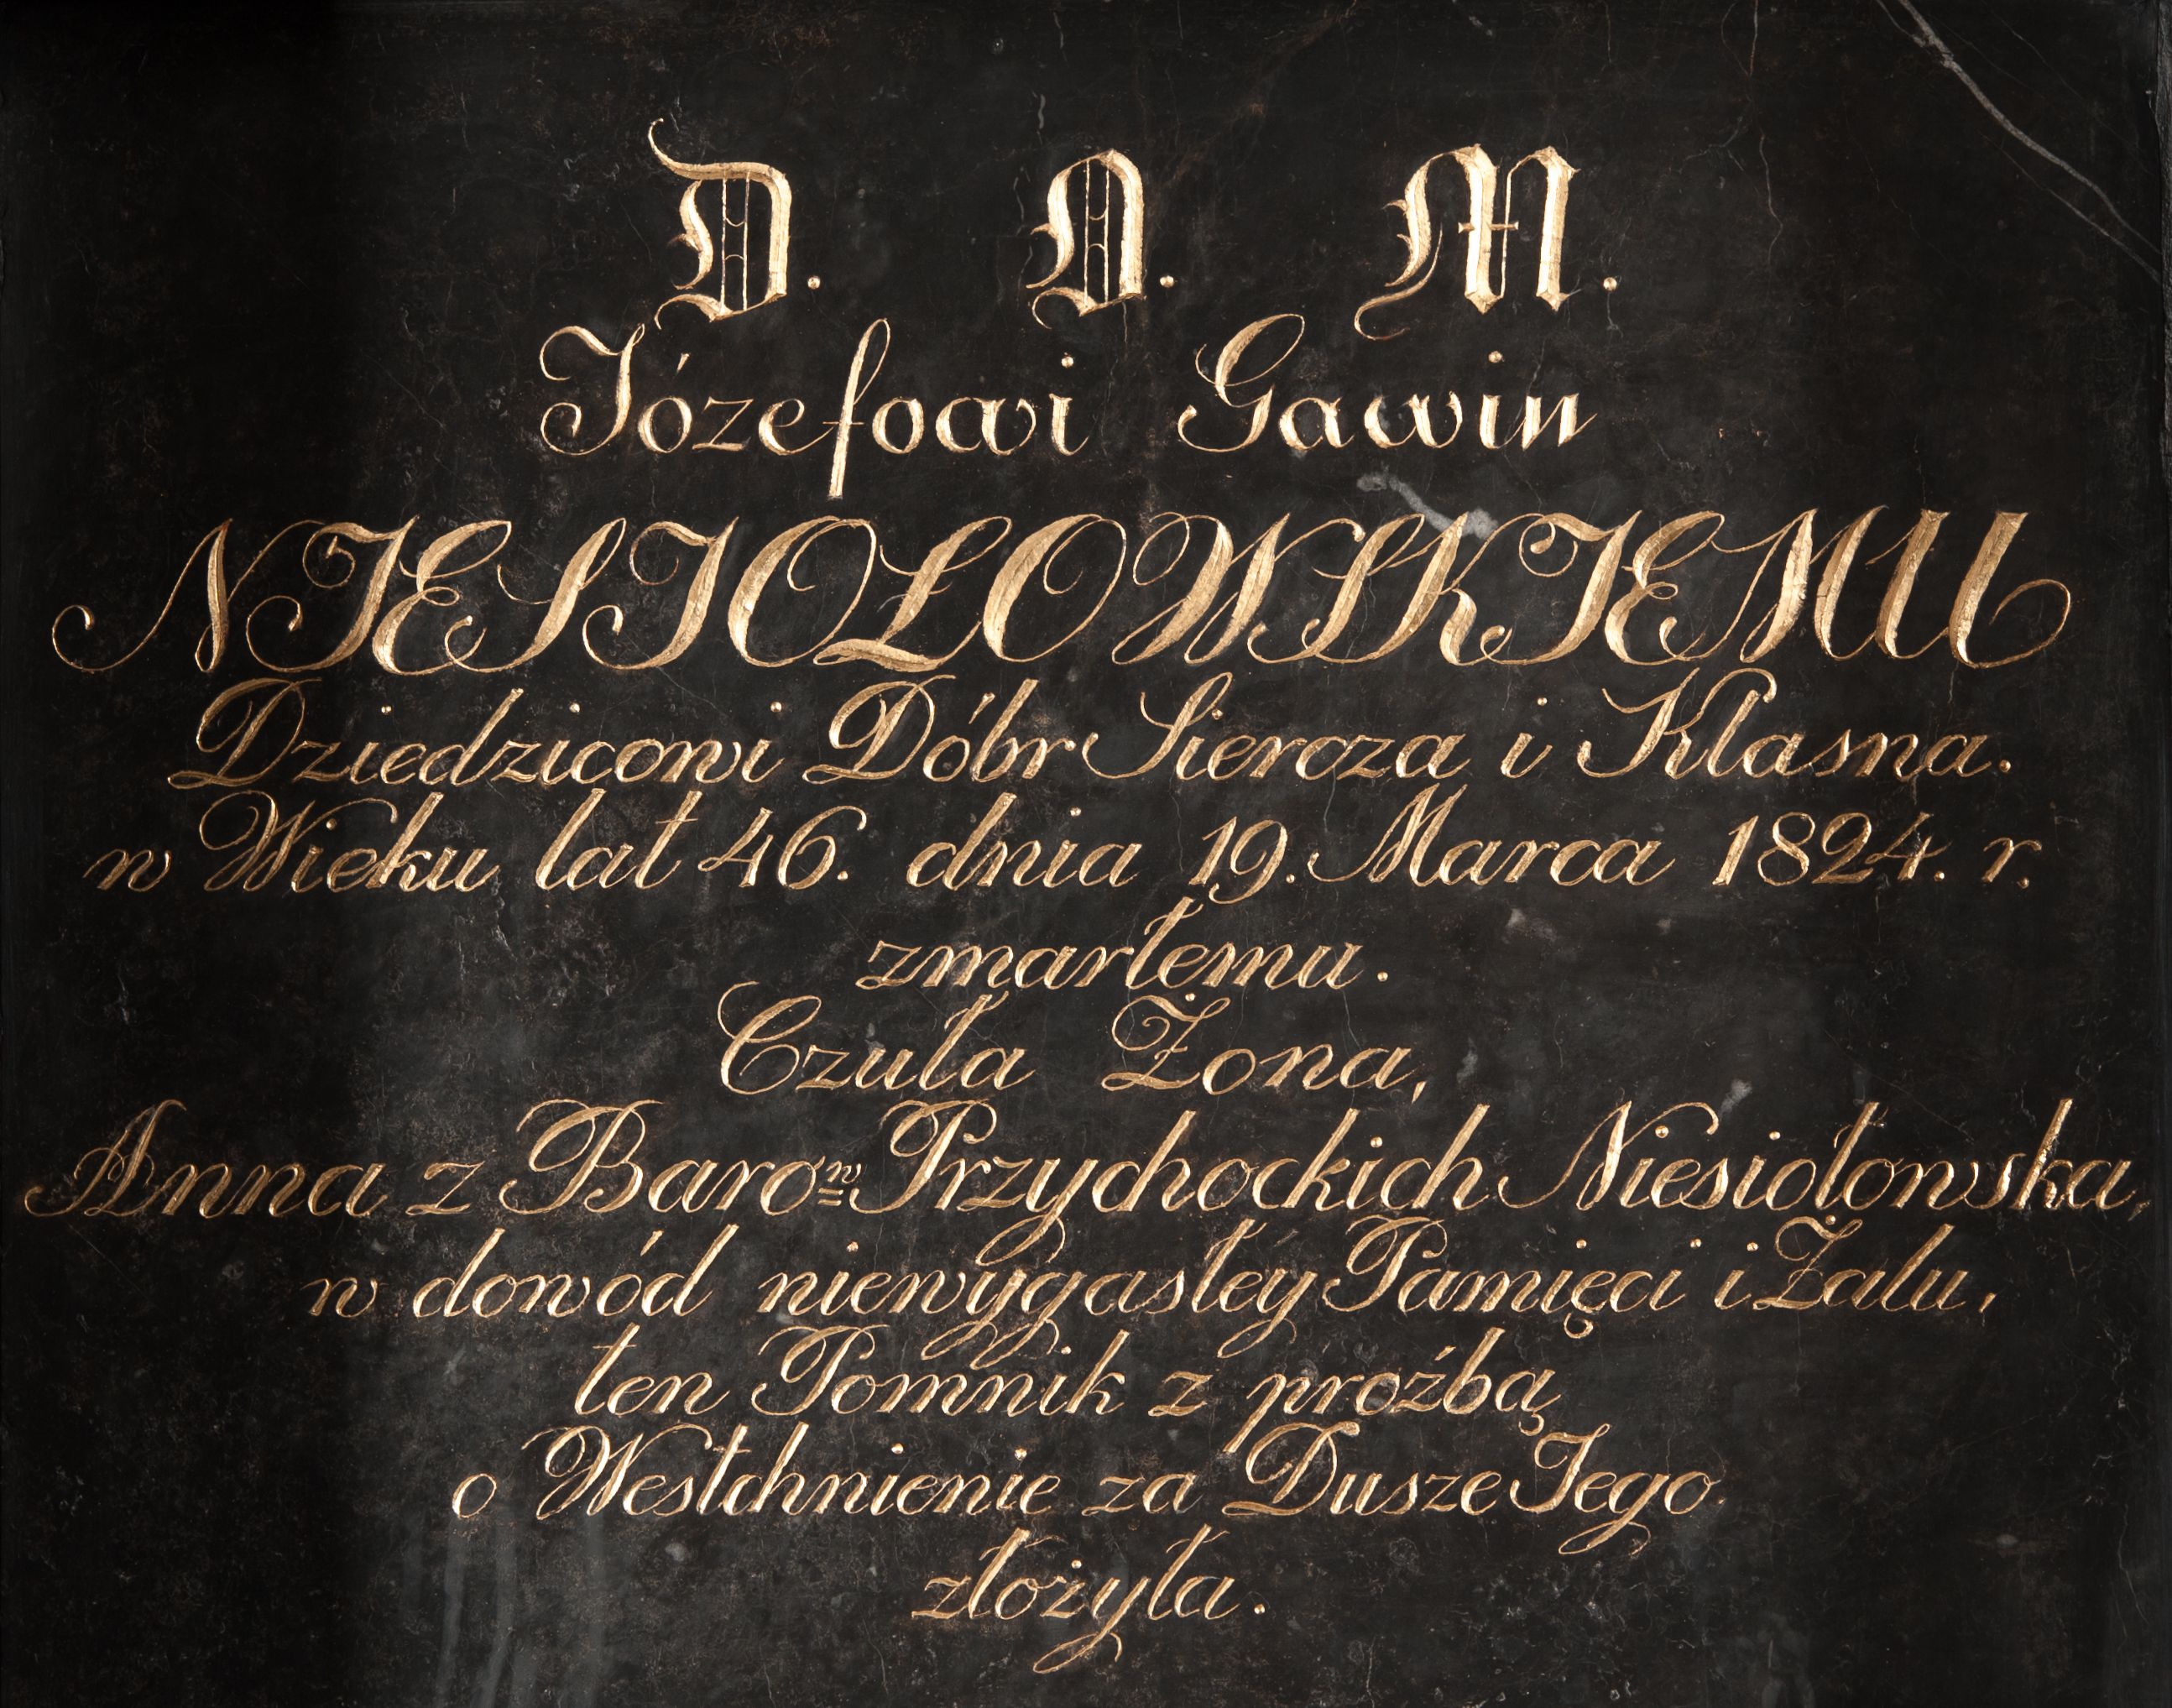 D. O. M.
Józefowi Gawin
NIESIOŁOWSKIEMU
Dziedzicowi Dóbr Siercza i Klasna.
w Wieku lat 46. dnia 19. Marca 1824. r.
zmarłemu.
Czuła Żona,
Anna z Baroⁿ Przychockich Niesiołowska,
w dowód niewygasłey Pamięci i Żalu,
ten Pomnik z proźbą
o Westchnienie za Dusze Jego
złożyła.